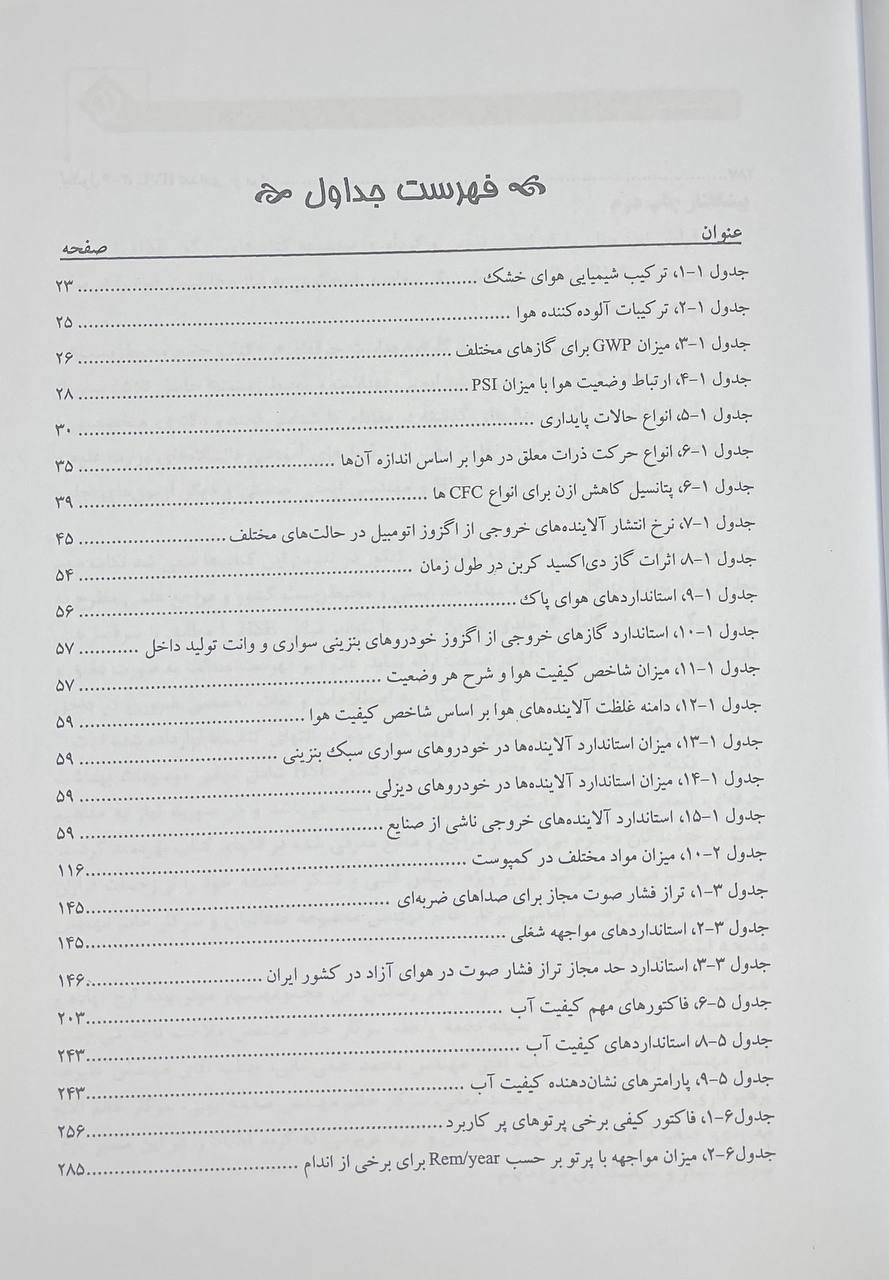 فهرست جداول
عنوان صفحه
جدول ۱-۱، ترکیب شیمیایی هوای خشک ........ ۲۳
جدول ۱-۲، ترکیبات آلوده‌کننده هوا ........ ۲۵
جدول ۱-۳، میزان GWP برای گازهای مختلف ........ ۲۶
جدول ۱-۴، ارتباط وضعیت هوا با میزان PSI ........ ۲۸
جدول ۱-۵، انواع حالات پایداری ........ ۳۰
جدول ۱-۶، انواع حرکت ذرات معلق در هوا بر اساس اندازه آن‌ها ........ ۳۵
جدول ۱-۶، پتانسیل کاهش ازن برای انواع CFC ها ........ ۳۹
جدول ۱-۷، نرخ انتشار آلاینده‌های خروجی از اگزوز اتومبیل در حالت‌های مختلف ........ ۴۵
جدول ۱-۸، اثرات گاز دی‌اکسید کربن در طول زمان ........ ۵۴
جدول ۱-۹، استانداردهای هوای پاک ........ ۵۶
جدول ۱-۱۰، استاندارد گازهای خروجی از اگزوز خودروهای بنزینی سواری و وانت تولید داخل ........ ۵۷
جدول ۱-۱۱، میزان شاخص کیفیت هوا و شرح هر وضعیت ........ ۵۷
جدول ۱-۱۲، دامنه غلظت آلاینده‌های هوا بر اساس شاخص کیفیت هوا ........ ۵۹
جدول ۱-۱۳، میزان استاندارد آلاینده‌ها در خودروهای سواری سبک بنزینی ........ ۵۹
جدول ۱-۱۴، میزان استاندارد آلاینده‌ها در خودروهای دیزلی ........ ۵۹
جدول ۱-۱۵، استاندارد آلاینده‌های خروجی ناشی از صنایع ........ ۵۹
جدول ۲-۱۰، میزان مواد مختلف در کمپوست ........ ۱۱۶
جدول ۳-۱، تراز فشار صوت مجاز برای صداهای ضربه‌ای ........ ۱۴۵
جدول ۳-۲، استانداردهای مواجهه شغلی ........ ۱۴۵
جدول ۳-۳، استاندارد حد مجاز تراز فشار صوت در هوای آزاد در کشور ایران ........ ۱۴۶
جدول ۵-۶، فاکتورهای مهم کیفیت آب ........ ۲۰۳
جدول ۵-۸، استانداردهای کیفیت آب ........ ۲۴۳
جدول ۵-۹، پارامترهای نشان‌دهنده کیفیت آب ........ ۲۴۳
جدول۶-۱، فاکتور کیفی برخی پرتوهای پر کاربرد ........ ۲۵۶
جدول۶-۲، میزان مواجهه با پرتو بر حسب Rem/year برای برخی از اندام ........ ۲۸۵